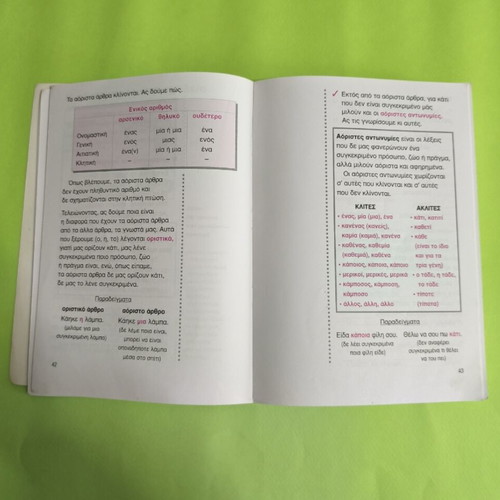 Τα αόριστα άρθρα κλίνονται. Ας δούμε πώς.
Ενικός αριθμός
αρσενικό θηλυκό ουδέτερο
Ονομαστική ένας μία ή μια ένα
Γενική ενός μιας ενός
Αιτιατική ένα(ν) μία ή μια ένα
Κλητική – – –
Όπως βλέπουμε, τα αόριστα άρθρα
δεν έχουν πληθυντικό αριθμό και
δε σχηματίζονται στην κλητική πτώση.
Τελειώνοντας, ας δούμε ποια είναι
η διαφορά που έχουν τα αόριστα άρθρα
από τα άλλα άρθρα, τα γνωστά μας. Αυτά
που ξέρουμε (ο, η, το) λέγονται οριστικά,
γιατί μας ορίζουν κάτι, μας λένε
συγκεκριμένα ποιο πρόσωπο, ζώο
ή πράγμα είναι, ενώ, όπως είπαμε,
τα αόριστα άρθρα δε μας ορίζουν κάτι,
δε μας το λένε συγκεκριμένα.
Παραδείγματα
οριστικό άρθρο αόριστο άρθρο
Κάηκε η λάμπα. Κάηκε μια λάμπα.
(μιλάμε για μια (δε λέμε ποια είναι,
συγκεκριμένη λάμπα) μπορεί να είναι
οποιαδήποτε λάμπα
μέσα στο σπίτι)
42
✓ Εκτός από τα αόριστα άρθρα, για κάτι
που δεν είναι συγκεκριμένο μάς
μιλούν και οι αόριστες αντωνυμίες.
Ας τις γνωρίσουμε κι αυτές.
Αόριστες αντωνυμίες είναι οι λέξεις
που δε μας φανερώνουν ένα
συγκεκριμένο πρόσωπο, ζώο ή πράγμα,
αλλά μιλούν αόριστα και αφηρημένα.
Οι αόριστες αντωνυμίες χωρίζονται
σ' αυτές που κλίνονται και σ' αυτές
που δεν κλίνονται.
ΚΛΙΤΕΣ ΑΚΛΙΤΕΣ
• ένας, μία (μια), ένα • κάτι, κατιτί
• κανένας (κανείς), • καθετί
καμία (καμιά), κανένα • κάθε
• καθένας, καθεμία (είναι το ίδιο
(καθεμιά), καθένα και για τα
• κάποιος, κάποια, κάποιο τρία γένη)
• μερικοί, μερικές, μερικά • ο τάδε, η τάδε,
• κάμποσος, κάμποση, το τάδε
κάμποσο • τίποτε
• άλλος, άλλη, άλλο (τίποτα)
Παραδείγματα
Είδα κάποιο φίλη σου. Θέλω να σου πω κάτι.
(δε λέει συγκεκριμένα (δεν αναφέρει
ποια φίλη είδε) συγκεκριμένα τι θέλει
να του πει)
43